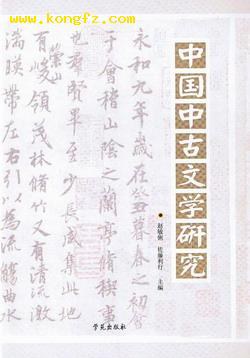 www.kongfz.com
中国中古文学研究
赵敏俐 佐藤利行 主编
永和九年歲在癸丑暮春之初會
于會稽山陰之蘭亭脩稧事
也群賢畢至少長咸集此地
有崇山峻領茂林脩竹又有清流激
湍暎帶左右引以為流觴曲水
学苑出版社